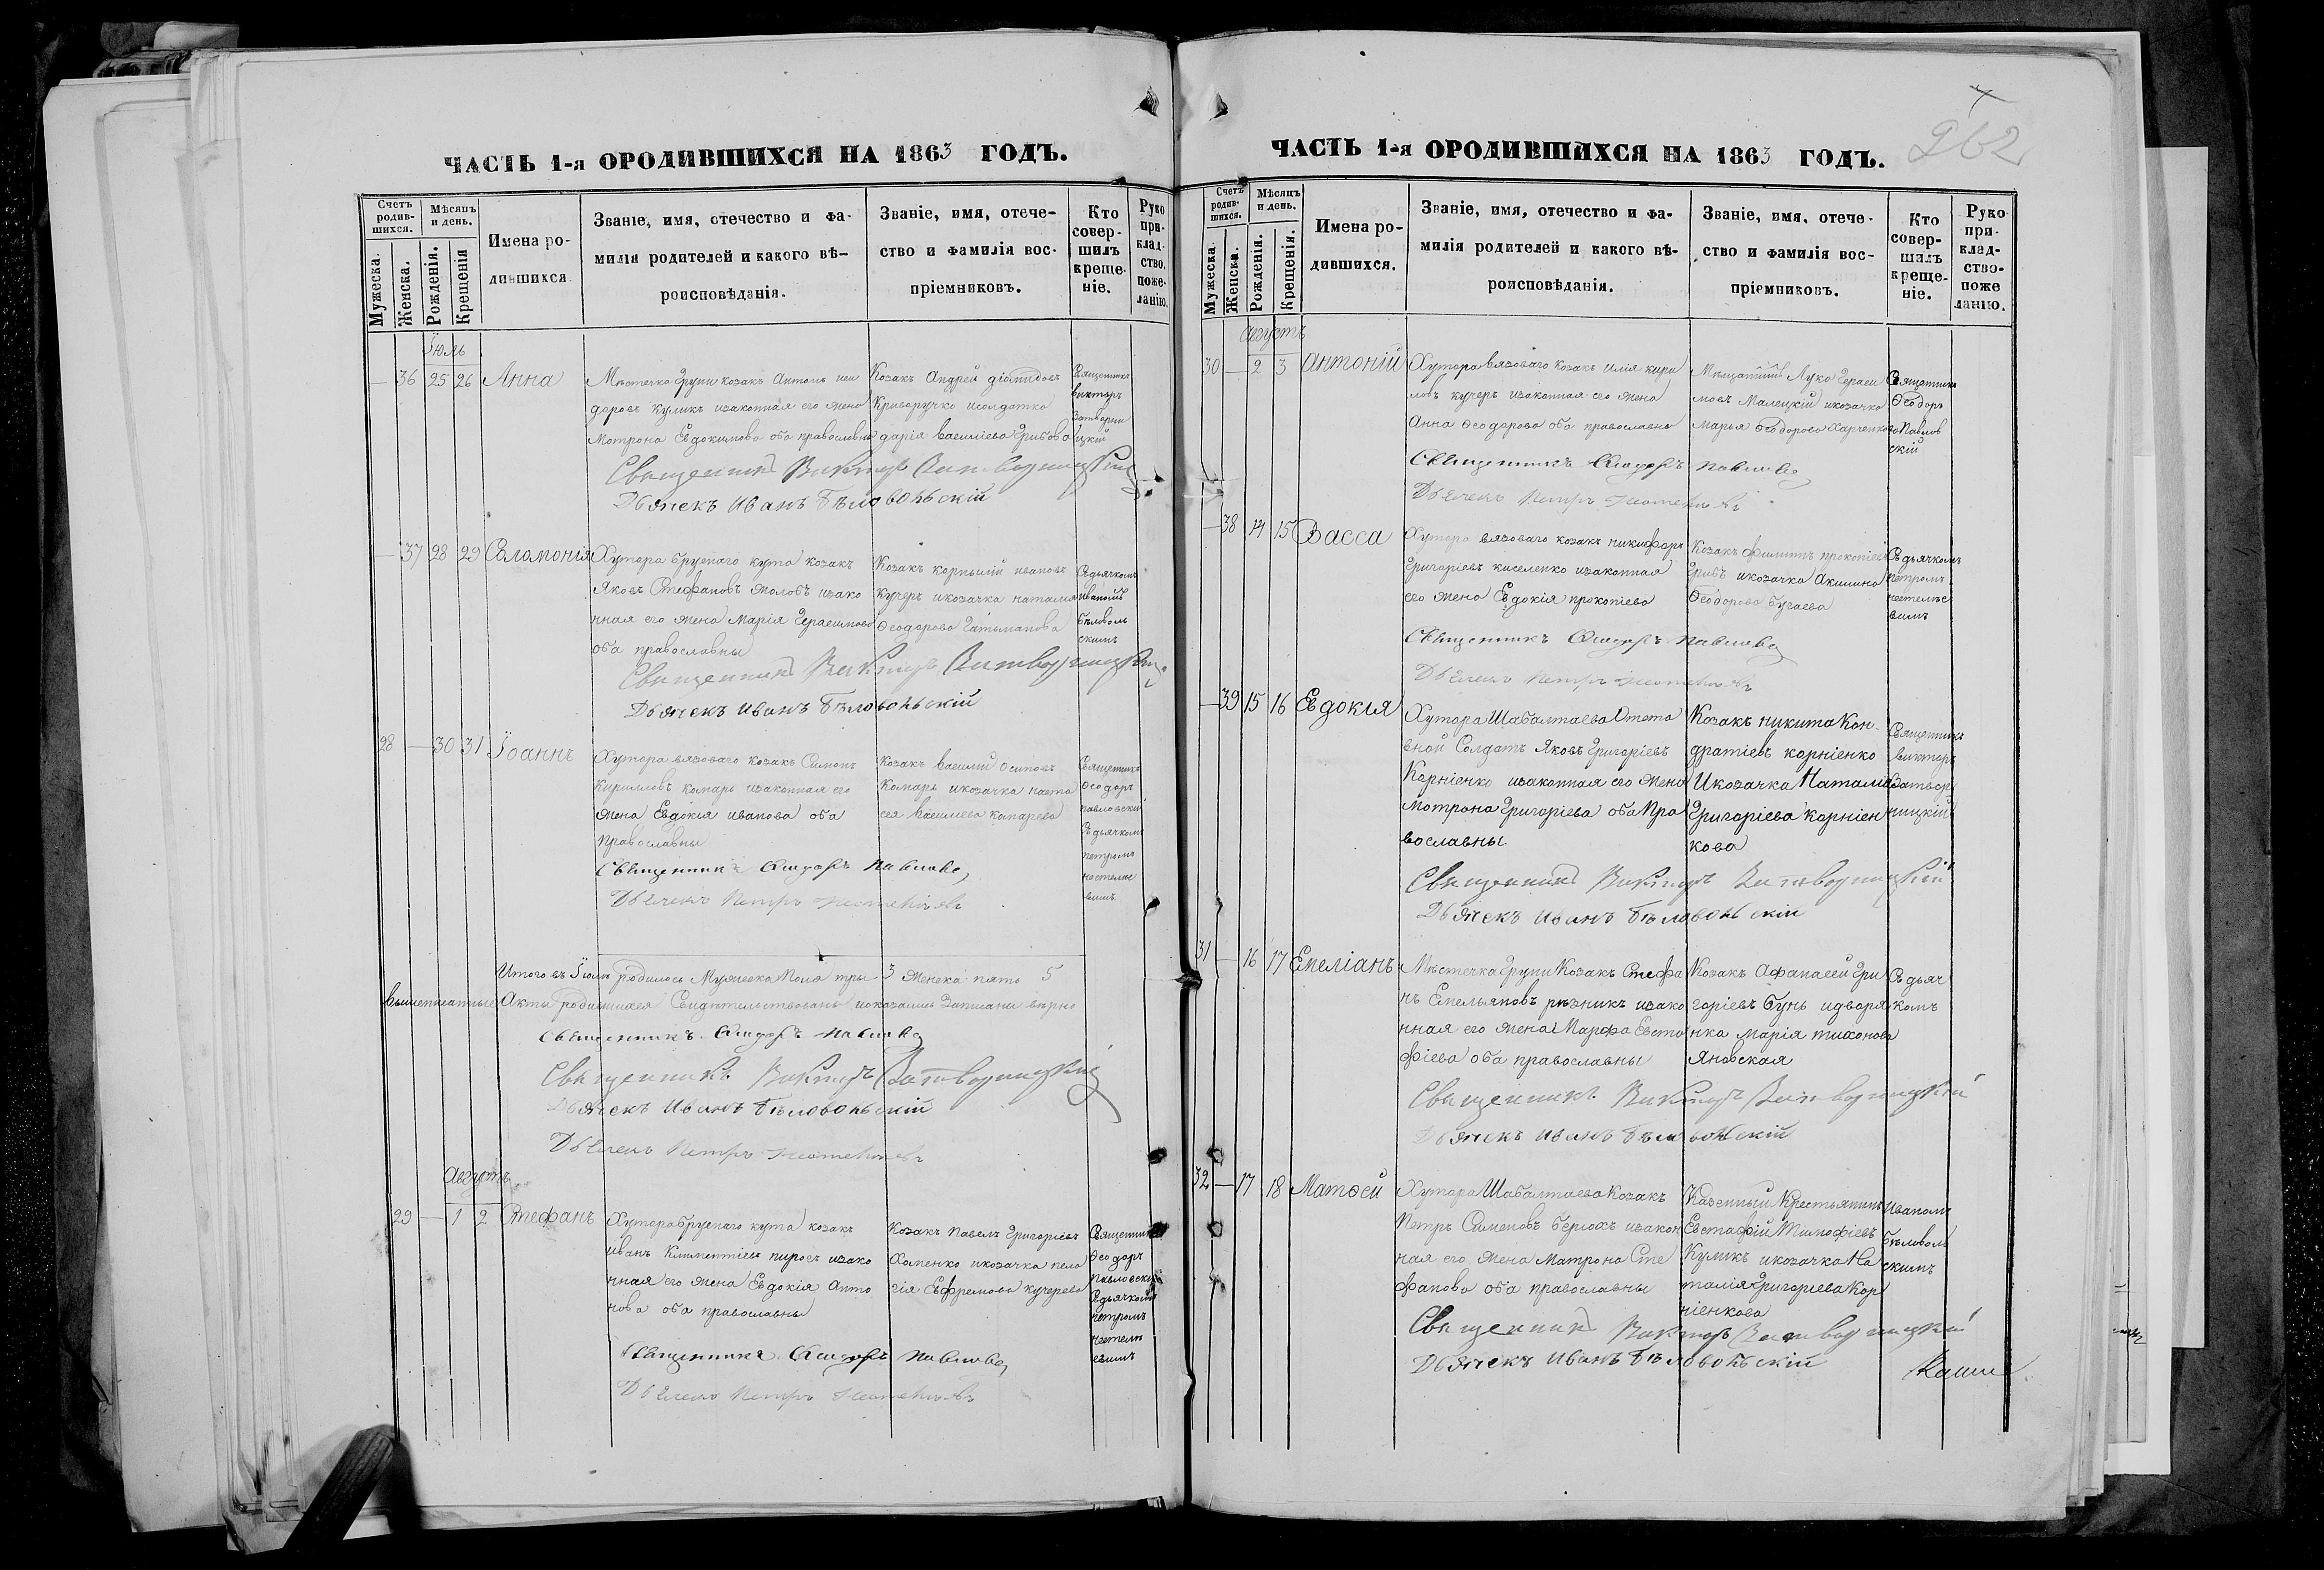 ЧАСТЬ 1-я О РОДИВШИХСЯ НА 1863 ГОДЪ.
Счетъ родившихся.
Мѣсяцъ и день.
Мужеска.
Женска.
Рожденія.
Крещенія
Имена родившихся.
Званіе, имя, отечество и фамилія родителей и какого вѣроисповѣданія.
Званіе, имя, отечество и фамилія воспріемниковъ.
Кто совершилъ крещеніе.
Рукоприкладство, пожеланію.
Іюль
— 36 25 26 Анна
Мѣстечка Груни козакъ Антонъ
доровъ Куликъ изаконная его жена
Мотрона Евдокимова оба православны
Козакъ Андрей Діомидовъ
Криворучко исолдатка
Дарія Василіева Грибова
Священникъ
Викторъ
Затворни
цкій
Священникъ Викторъ Затворницкій
Дьячекъ Иванъ Бѣловольскій
— 37 28 29 Соломонія
Хутора Бруснаго кута козакъ
Яковъ Стефановъ Жолобъ изако
нная его жена Марія Герасимова
оба православны
Козакъ Корнилій Ивановъ
Кучеръ икозачка Наталія
Феодорова Гатьманова
Съдьячкомъ
Иваномъ
Бѣловоль
скимъ
Священникъ Викторъ Затворницкій
Дьячекъ Иванъ Бѣловольскій
28 — 30 31 Іоаннъ
Хутора Вязоваго козакъ Симонъ
Кирилловъ Комаръ изаконная его
жена Евдокія Иванова оба
православны
Козакъ Василій Осиповъ
Комаръ икозачка Наста
сея Василіева Комарева
Священникъ
Феодоръ
Павловскій
Съдьячкомъ
Петромъ
Священникъ Феодоръ Павловс
Дьячекъ Петръ
Итого въ Іюлѣ родилось Мужеска Пола три 3 Женска пять 5
Вышеписанные Акты родившихся Свидѣтельствованы иоказались Записаны вѣрно
Священникъ Феодоръ Павловс
Священникъ Викторъ Затворницкій
Дьячекъ Иванъ Бѣловольскій
Дьячекъ Петръ
Августъ
29 — 1 2 Стефанъ
Хутора Бруснаго кута козакъ
Иванъ Климентіевъ Пирогъ изако
нная его жена Евдокія Анто
нова оба православны
Козакъ Павелъ Григоріевъ
Хоменко икозачка Пела
гія Ефремова Кучерева
Священникъ
Феодоръ
Павловскій
Съдьячкомъ
Петромъ
Священникъ Феодоръ Павловс
Дьячекъ Петръ
ЧАСТЬ 1-я О РОДИВШИХСЯ НА 1863 ГОДЪ.
262
Счетъ родившихся.
Мѣсяцъ и день.
Мужеска.
Женска.
Рожденія.
Крещенія.
Имена родившихся.
Званіе, имя, отечество и фамилія родителей и какого вѣроисповѣданія.
Званіе, имя, отечество и фамилія воспріемниковъ.
Кто совершилъ крещеніе.
Рукоприкладство поже ланію.
Августъ
30 — 2 3 Антоній
Хутора Вязоваго козакъ Илія Кири
ловъ Кучеръ изаконная его жена
Анна Феодорова оба православны
Мѣщанинъ Лука Гераси
мовъ Малецкій икозачка
Марья Феодорова Харченкова
Священникъ
Феодоръ
Павлов
скій
Священникъ Феодоръ Павловс
Дьячекъ Петръ
— 38 14 15 Васса
Хутора Вязоваго козакъ Никифоръ
Григоріевъ Киселенко изаконная
его жена Евдокія Прокопіева
Козакъ Филиппъ Прокопіевъ
Грибъ икозачка Акилина
Феодорова Бугаева
Съдьячкомъ
Петромъ
Священникъ Феодоръ Павловс
Дьячекъ Петръ
— 39 15 16 Евдокія
Хутора Шабалтаева Отста
вной Солдатъ Яковъ Григоріевъ
Корніенко изаконная его жена
Мотрона Григоріева оба Пра
вославны
Козакъ Никита Кон
дратіевъ Корніенко
Икозачка Наталія
Григоріева Корніен
кова
Священникъ
Викторъ
Затвор
ницкій
Священникъ Викторъ Затворницкій
Дьячекъ Иванъ Бѣловольскій
31 — 16 17 Емеліанъ
Мѣстечка Груни Козакъ Стефа
нъ Емельяновъ Рѣзникъ изако
нная его жена Марфа Евста
фіева оба православны
Козакъ Афанасей Гри
горіевъ Бунь идворя
нка Марія Тихонова
Яновская
Съдьяч
комъ
Священникъ Викторъ Затворницкій
Дьячекъ Иванъ Бѣловольскій
32 — 17 18 Матѳей
Хутора Шабалтаева Козакъ
Петръ Симеоновъ Берюхъ изакон
ная его жена Матрона Сте
фанова оба православны
Казенный Крестьянинъ
Евстафій Тимофіевъ
Куликъ икозачка На
талія Григоріева Кор
ніенкова
Иваномъ
Бѣловоль
скимъ
Священникъ Викторъ Затворницкій
Дьячекъ Иванъ Бѣловольскій